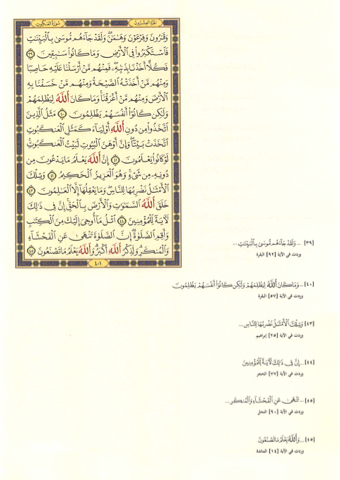 الجزء العشرون سورة العنكبوت
وَقَٰرُونَ وَفِرْعَوْنَ وَهَٰمَٰنَ ۖ وَلَقَدْ جَآءَهُم مُّوسَىٰ بِٱلْبَيِّنَٰتِ
فَٱسْتَكْبَرُوا۟ فِى ٱلْأَرْضِ وَمَا كَانُوا۟ سَٰبِقِينَ ٣٩
فَكُلًّا أَخَذْنَا بِذَنۢبِهِۦ ۖ فَمِنْهُم مَّنْ أَرْسَلْنَا عَلَيْهِ حَاصِبًا
وَمِنْهُم مَّنْ أَخَذَتْهُ ٱلصَّيْحَةُ وَمِنْهُم مَّنْ خَسَفْنَا بِهِ
ٱلْأَرْضَ وَمِنْهُم مَّنْ أَغْرَقْنَا ۚ وَمَا كَانَ ٱللَّهُ لِيَظْلِمَهُمْ
وَلَٰكِن كَانُوٓا۟ أَنفُسَهُمْ يَظْلِمُونَ ٤٠ مَثَلُ ٱلَّذِينَ
ٱتَّخَذُوا۟ مِن دُونِ ٱللَّهِ أَوْلِيَآءَ كَمَثَلِ ٱلْعَنكَبُوتِ
ٱتَّخَذَتْ بَيْتًا ۖ وَإِنَّ أَوْهَنَ ٱلْبُيُوتِ لَبَيْتُ ٱلْعَنكَبُوتِ ۖ
لَوْ كَانُوا۟ يَعْلَمُونَ ٤١ إِنَّ ٱللَّهَ يَعْلَمُ مَا يَدْعُونَ مِن
دُونِهِۦ مِن شَىْءٍ ۚ وَهُوَ ٱلْعَزِيزُ ٱلْحَكِيمُ ٤٢ وَتِلْكَ
ٱلْأَمْثَٰلُ نَضْرِبُهَا لِلنَّاسِ ۖ وَمَا يَعْقِلُهَآ إِلَّا ٱلْعَٰلِمُونَ ٤٣
خَلَقَ ٱللَّهُ ٱلسَّمَٰوَٰتِ وَٱلْأَرْضَ بِٱلْحَقِّ ۚ إِنَّ فِى ذَٰلِكَ
لَءَايَةً لِّلْمُؤْمِنِينَ ٤٤ ٱتْلُ مَآ أُوحِىَ إِلَيْكَ مِنَ ٱلْكِتَٰبِ
وَأَقِمِ ٱلصَّلَوٰةَ ۖ إِنَّ ٱلصَّلَوٰةَ تَنْهَىٰ عَنِ ٱلْفَحْشَآءِ
وَٱلْمُنكَرِ ۗ وَلَذِكْرُ ٱللَّهِ أَكْبَرُ ۗ وَٱللَّهُ يَعْلَمُ مَا تَصْنَعُونَ ٤٥
٤٠١
[٣٩] ... وَلَقَدْ جَآءَهُم مُّوسَىٰ بِٱلْبَيِّنَٰتِ ...
وردت في الآية [٩٢] البقرة
[٤٠] ... وَمَا كَانَ ٱللَّهُ لِيَظْلِمَهُمْ وَلَٰكِن كَانُوٓا۟ أَنفُسَهُمْ يَظْلِمُونَ
وردت في الآية [٥٧] البقرة
[٤٣] وَتِلْكَ ٱلْأَمْثَٰلُ نَضْرِبُهَا لِلنَّاسِ ...
وردت في الآية [٢٥] إبراهيم
[٤٤] ... إِنَّ فِى ذَٰلِكَ لَءَايَةً لِّلْمُؤْمِنِينَ
وردت في الآية [٧٧] الحجر
[٤٥] ... تَنْهَىٰ عَنِ ٱلْفَحْشَآءِ وَٱلْمُنكَرِ ...
وردت في الآية [٩٠] النحل
[٤٥] ... وَٱللَّهُ يَعْلَمُ مَا تَصْنَعُونَ
وردت في الآية [١٤] المائدة